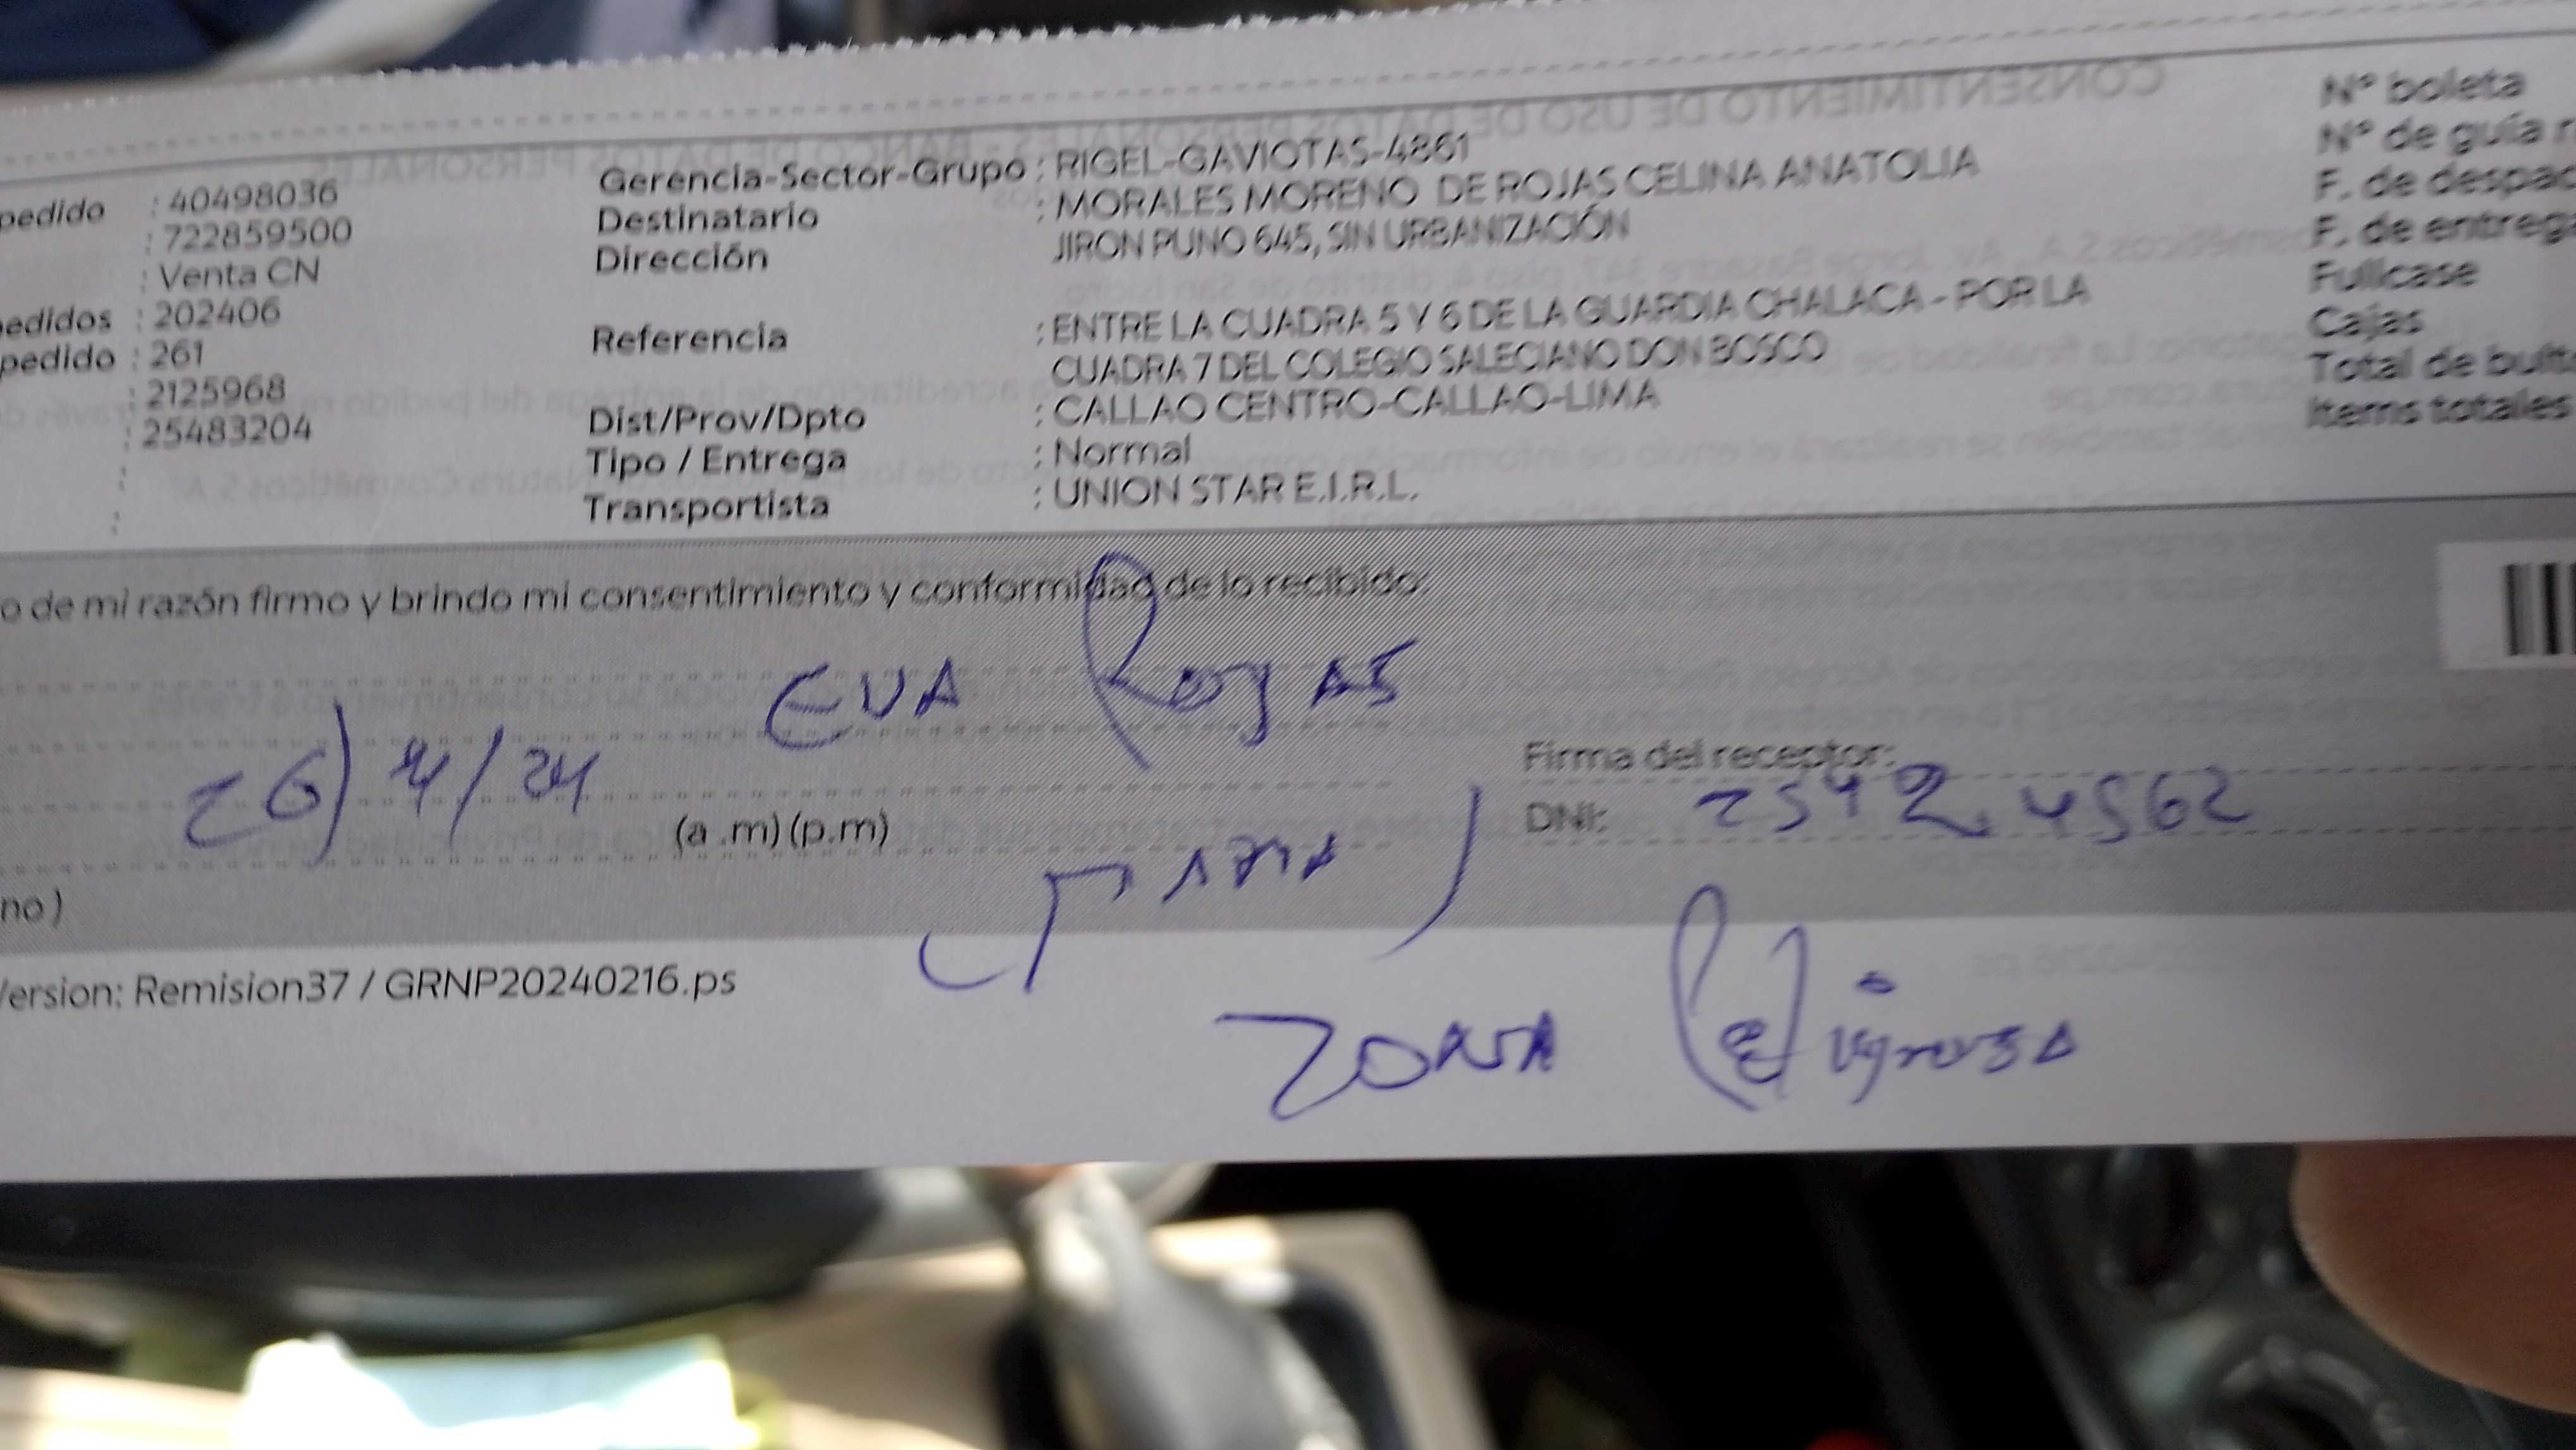 pedido : 40498036
: 722859500
: Venta CN
pedidos : 202406
pedido : 261
: 2125968
: 25483204
:
:
Gerencia-Sector-Grupo : RIGEL-GAVIOTAS-4861
Destinatario : MORALES MORENO DE ROJAS CELINA ANATOLIA
Dirección JIRON PUNO 645, SIN URBANIZACIÓN
Referencia : ENTRE LA CUADRA 5 Y 6 DE LA GUARDIA CHALACA - POR LA
CUADRA 7 DEL COLEGIO SALECIANO DON BOSCO
Dist/Prov/Dpto : CALLAO CENTRO-CALLAO-LIMA
Tipo / Entrega : Normal
Transportista : UNION STAR E.I.R.L.
Nº boleta
Nº de guía r
F. de despac
F. de entrega
Fullcase
Cajas
Total de bult
Items totales
o de mi razón firmo y brindo mi consentimiento y conformidad de lo recibido:
EVA Rojas
26/4/24
(a .m) (p.m)
Firma del receptor:
DNI: 2542 4562
no )
Version: Remision37 / GRNP20240216.ps
ZONA Peligrosa